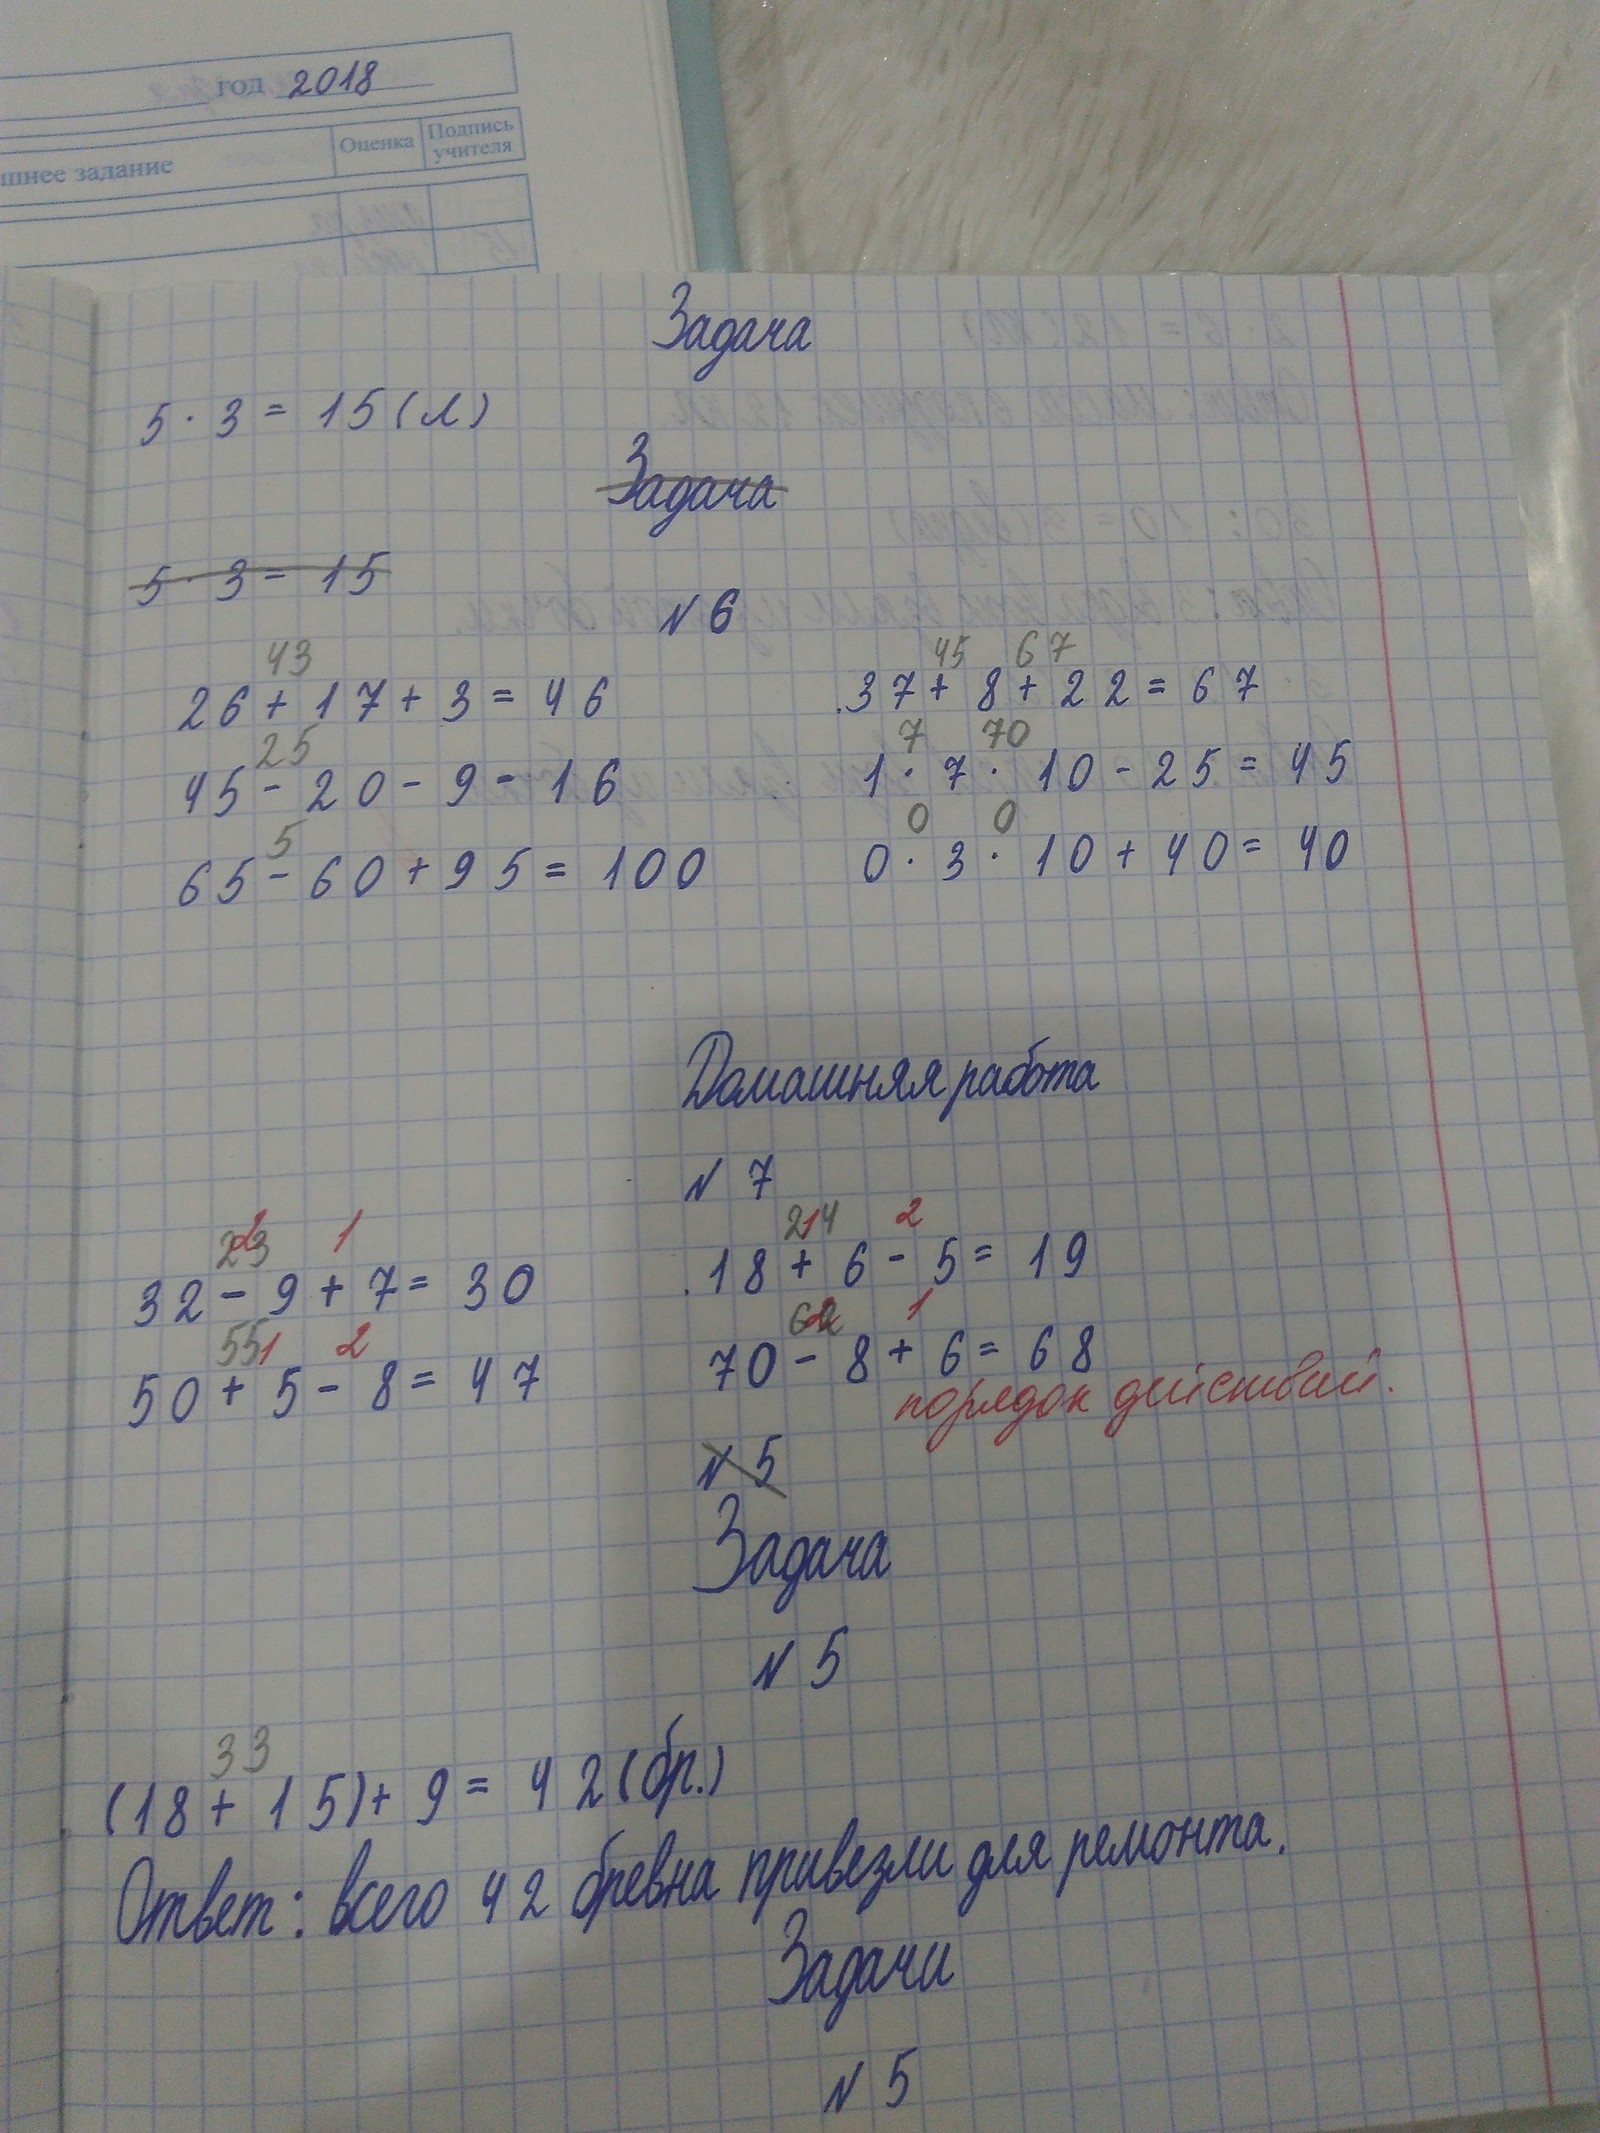 год 2018
шнее задание
Оценка
Подпись учителя
Задача
5 · 3 = 15 (л)
Задача
5 · 3 = 15
N 6
43
26 + 17 + 3 = 46
45 67
37 + 8 + 22 = 67
25
45 - 20 - 9 = 16
7 70
1 · 7 · 10 - 25 = 45
5
65 - 60 + 95 = 100
0 0
0 · 3 · 10 + 40 = 40
Домашняя работа
N 7
23 2 1
32 - 9 + 7 = 30
24 1 2
18 + 6 - 5 = 19
55 1 2
50 + 5 - 8 = 47
62 2 1
70 - 8 + 6 = 68
порядок действий.
N 5
Задача
N 5
33
(18 + 15) + 9 = 42 (бр.)
Ответ: всего 42 бревна привезли для ремонта.
Задачи
N 5